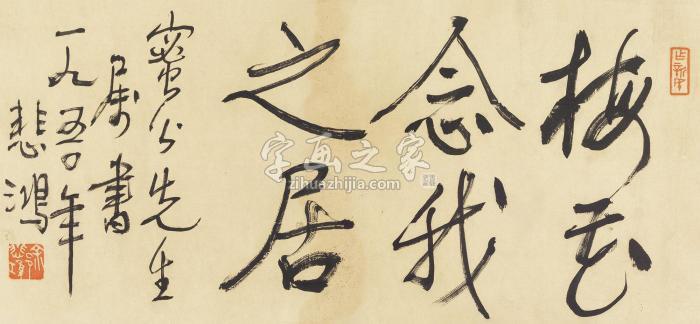 梅花
念我
之居
蜜公先生
属書
一九五〇年
悲鴻
字画之家
zihuazhijia.com